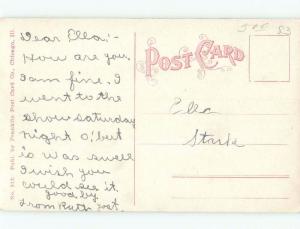 Dear Ella:-
How are you.
I am fine. I
went to the
show saturday
night O! but
is was swell
I wish you
could see it.
good by
from Ruth
POST CARD
Ella
No. 912. Publ. by Franklin Post Card Co., Chicago, Ill.